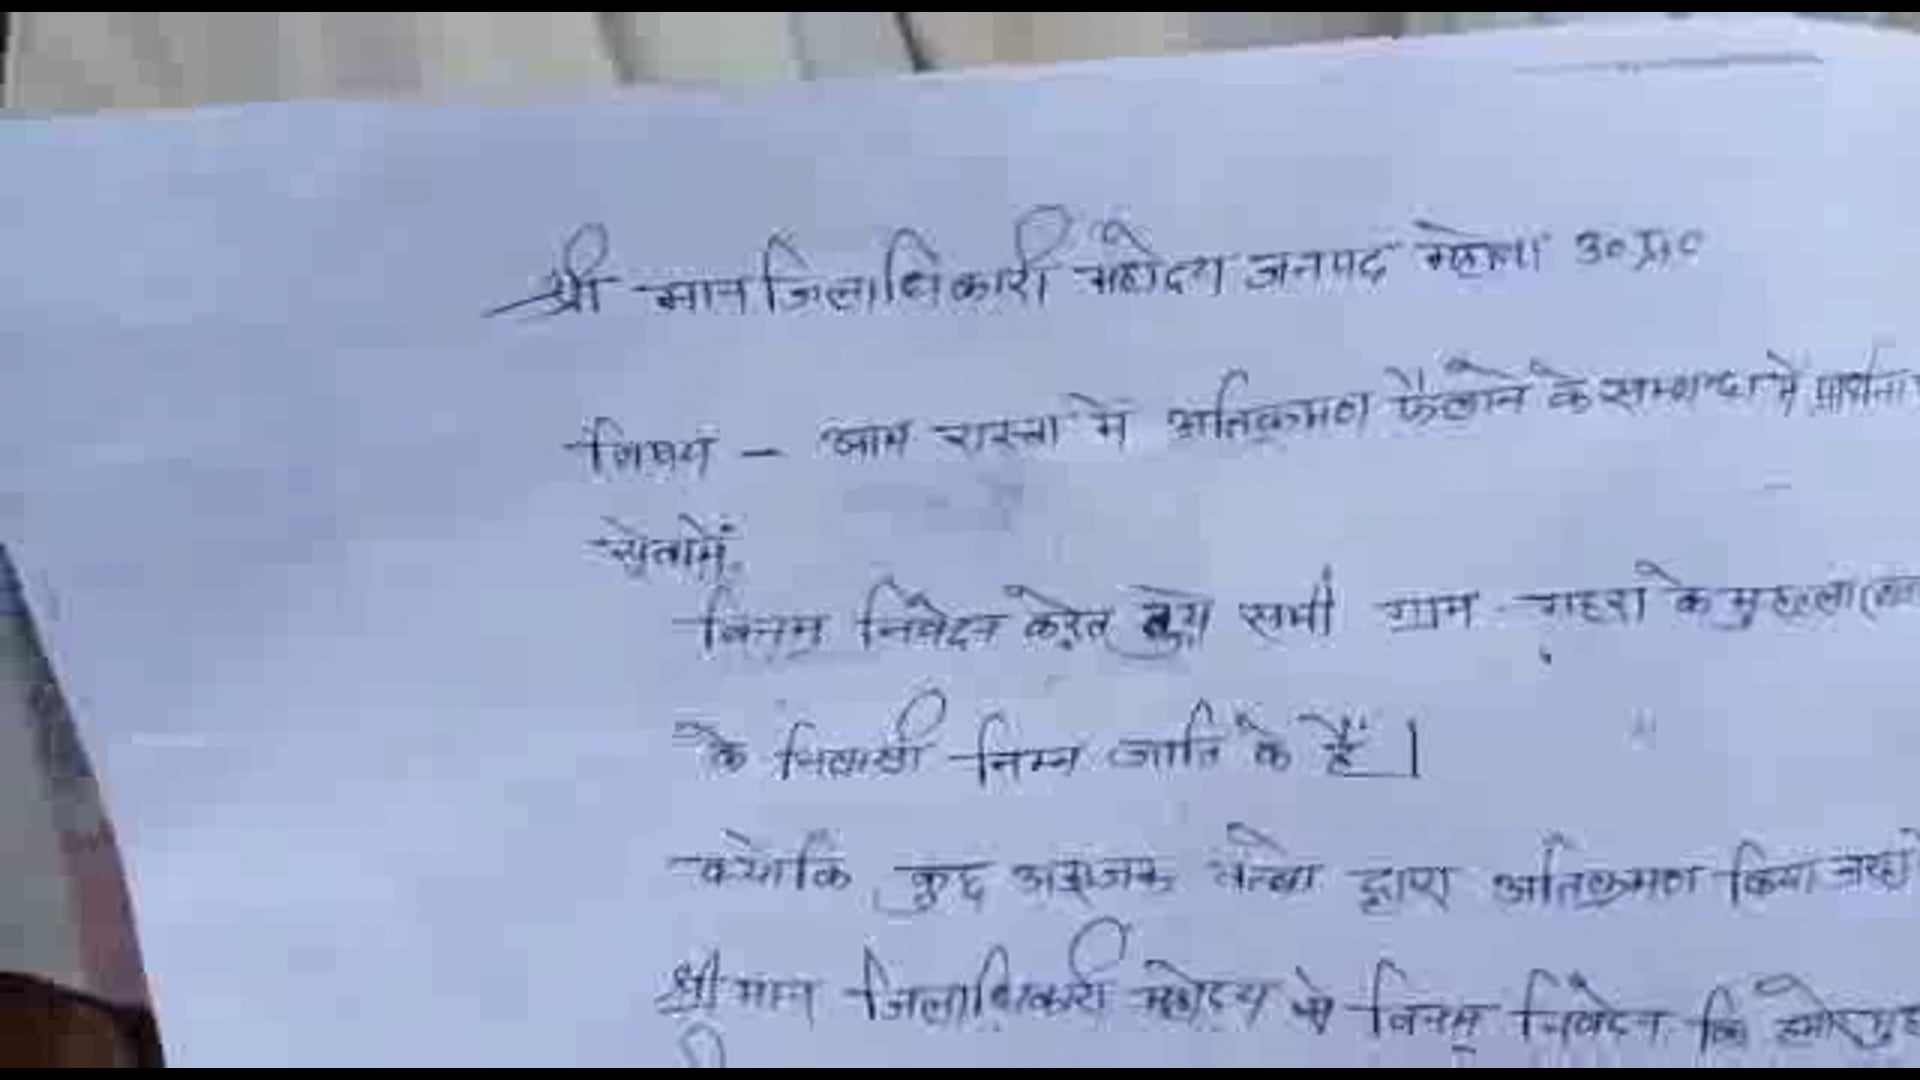 श्री मान जिलाधिकारी महोदय जनपद महोबा उ०प्र०
विषय - आम रास्ता में अतिक्रमण फैलाने के सम्बन्ध में प्रार्थना
सेवामें,
विनम्र निवेदन करते हुये सभी ग्राम के मुहल्ला
के निवासी निम्न जाति के हैं।
क्योंकि कुछ अराजक तत्वो द्वारा अतिक्रमण किया
श्री मान जिलाधिकारी महोदय से विनम्र निवेदन कि हमारे